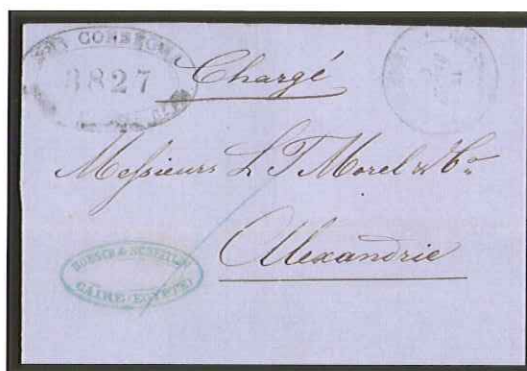 3827
Chargé
Messieurs L T Morel & Co
Alexandrie
CAIRE (EGYPTE)